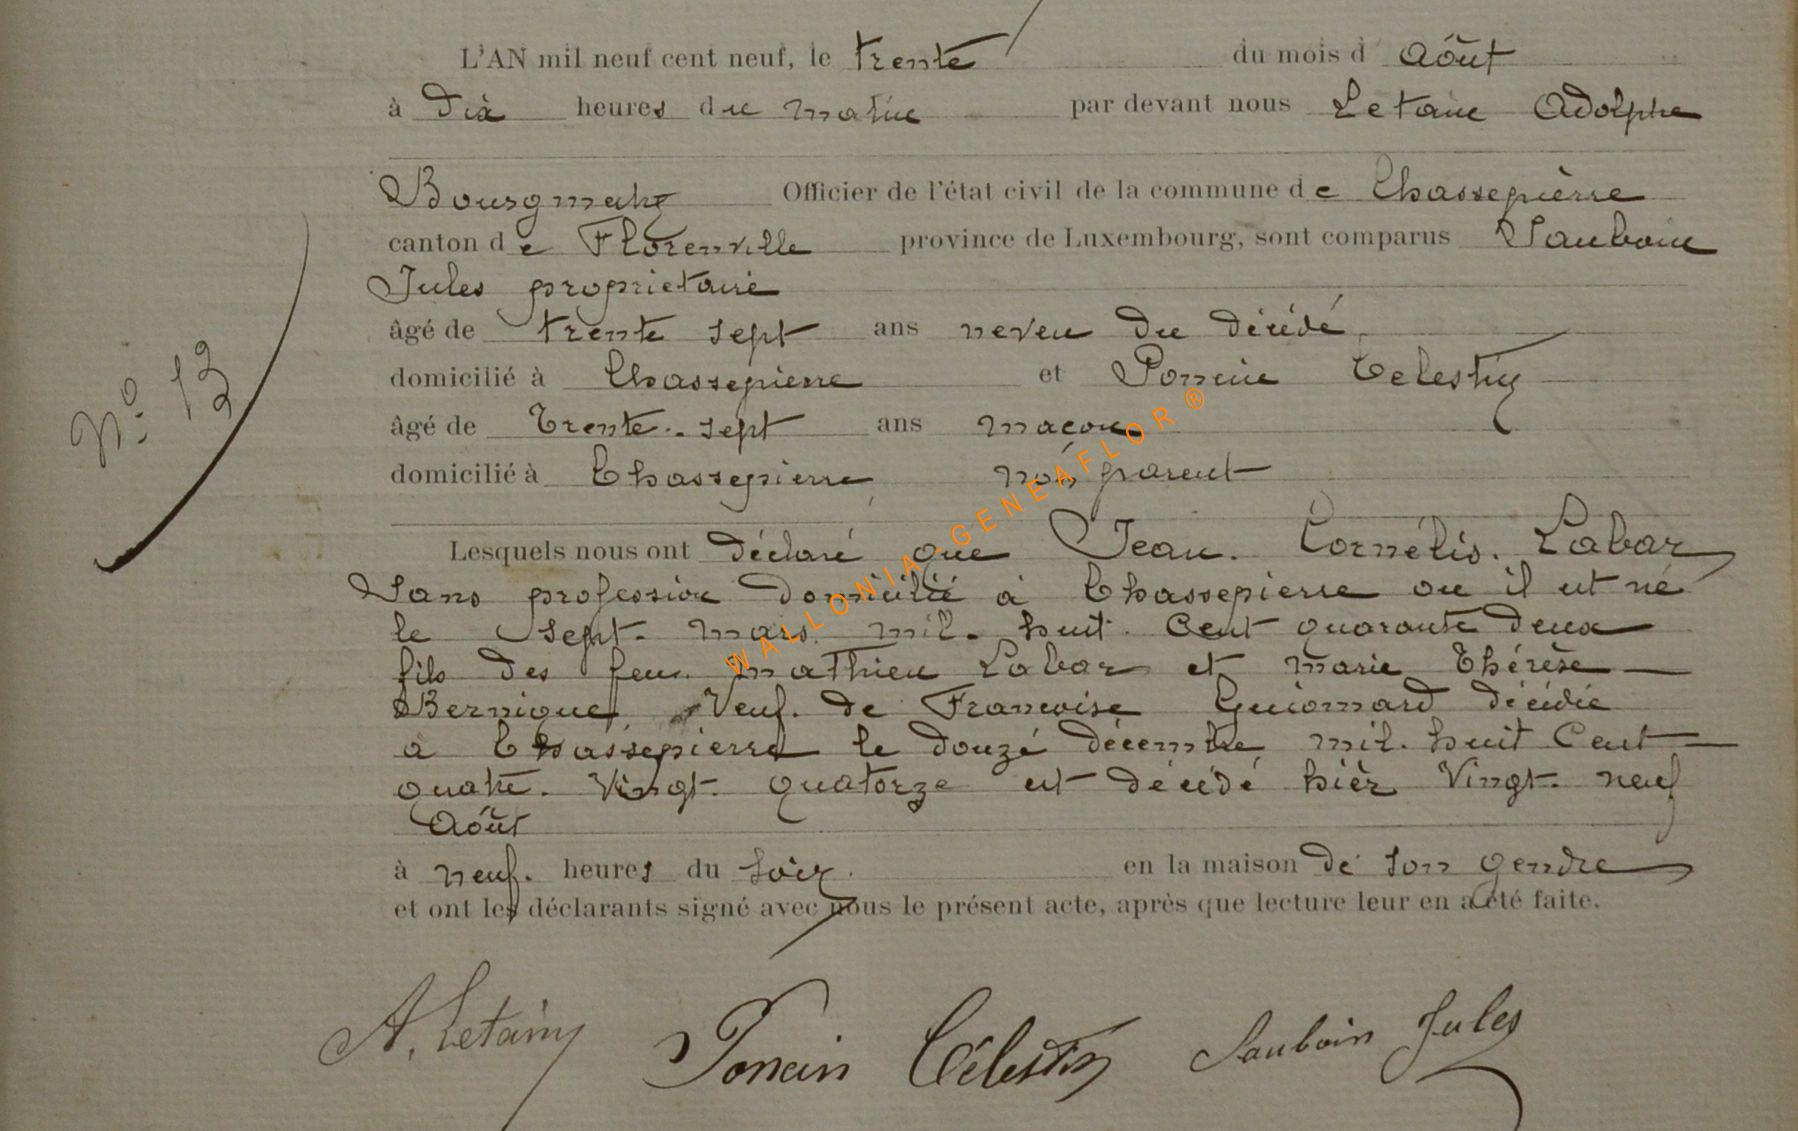 L'AN mil neuf cent neuf, le trente du mois d' Août
à dix heures du matin par devant nous Letain Adolphe
Bourgmestre Officier de l'état civil de la commune de Chassepierre
canton de Florenville province de Luxembourg, sont comparus Sauboin
Jules propriétaire
âgé de trente sept ans neveu du décédé
domicilié à Chassepierre et Poncin Celestin
âgé de Trente-sept ans maçon
domicilié à Chassepierre non parent
No. 13
Lesquels nous ont déclaré que Jean. Cornélis. Labar
Sans profession domicilié à Chassepierre ou il est né
le sept mars mil. huit cent quarante deux
fils des feus Mathieu Labar et Marie Thérèse
Bernique Veuf. de Francoise Guiomard décédée
a Chassepierre le douze décembre mil. huit Cent
quatre. Vingt. quatorze est décédé hièr Vingt. neuf
Août
à neuf. heures du soir. en la maison de son gendre
et ont les déclarants signé avec nous le présent acte, après que lecture leur en a été faite.
A. Letain Poncin Célestin Sauboin Jules
WALLONIA-GENEAFLOR ®